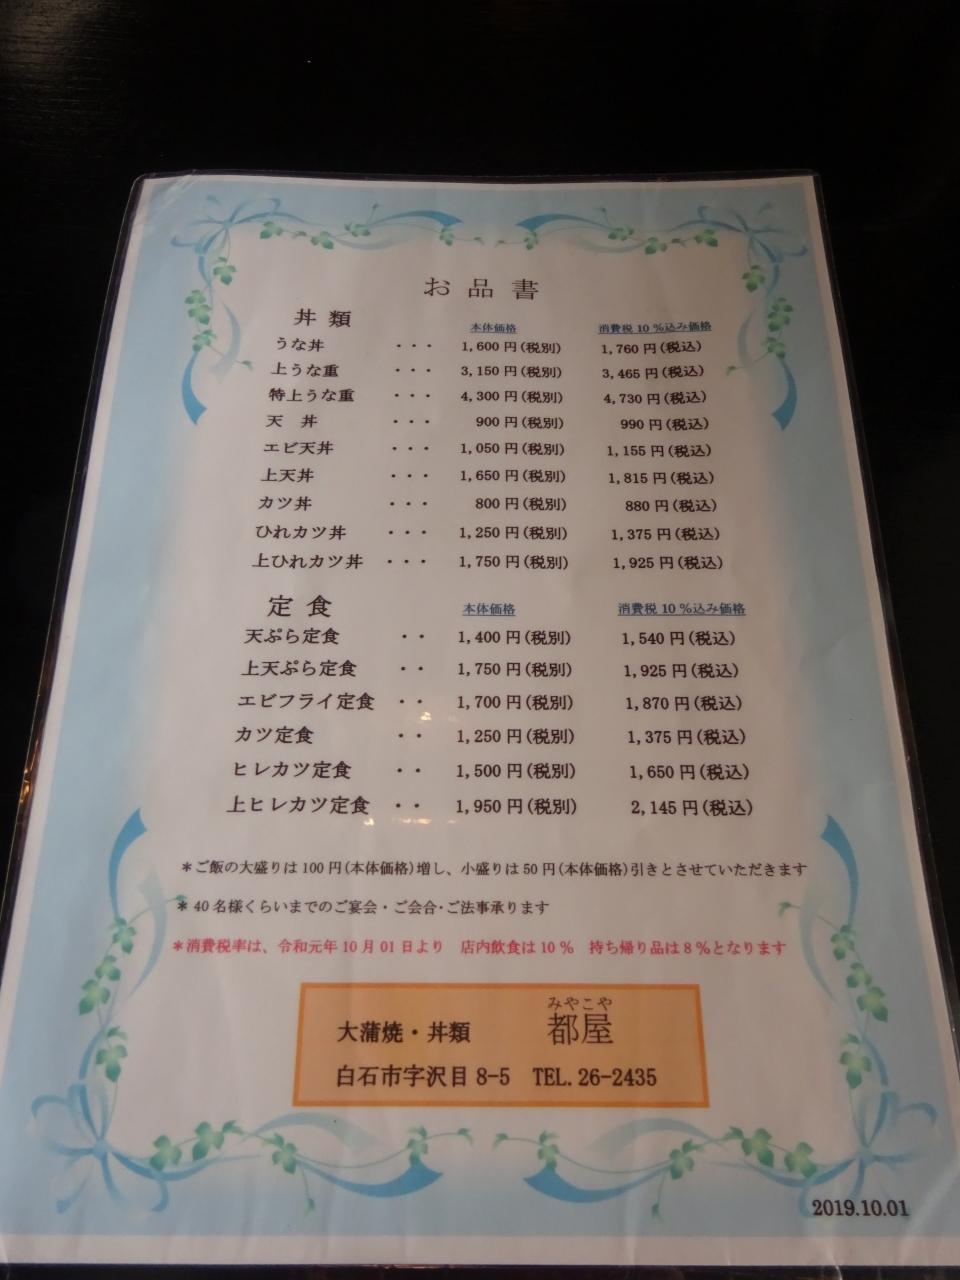 お品書
丼類 本体価格 消費税10%込み価格
うな丼 ・・・ 1,600円(税別) 1,760円(税込)
上うな重 ・・・ 3,150円(税別) 3,465円(税込)
特上うな重 ・・・ 4,300円(税別) 4,730円(税込)
天　丼 ・・・ 900円(税別) 990円(税込)
エビ天丼 ・・・ 1,050円(税別) 1,155円(税込)
上天丼 ・・・ 1,650円(税別) 1,815円(税込)
カツ丼 ・・・ 800円(税別) 880円(税込)
ひれカツ丼 ・・・ 1,250円(税別) 1,375円(税込)
上ひれカツ丼 ・・・ 1,750円(税別) 1,925円(税込)
定食 本体価格 消費税10%込み価格
天ぷら定食 ・・ 1,400円(税別) 1,540円(税込)
上天ぷら定食 ・・ 1,750円(税別) 1,925円(税込)
エビフライ定食 ・・ 1,700円(税別) 1,870円(税込)
カツ定食 ・・ 1,250円(税別) 1,375円(税込)
ヒレカツ定食 ・・ 1,500円(税別) 1,650円(税込)
上ヒレカツ定食 ・・ 1,950円(税別) 2,145円(税込)
＊ご飯の大盛りは100円(本体価格)増し、小盛りは50円(本体価格)引きとさせていただきます
＊40名様くらいまでのご宴会・ご会合・ご法事承ります
＊消費税率は、令和元年10月01日より　店内飲食は10%　持ち帰り品は8%となります
みやこや
大蒲焼・丼類 都屋
白石市字沢目8-5 TEL.26-2435
2019.10.01